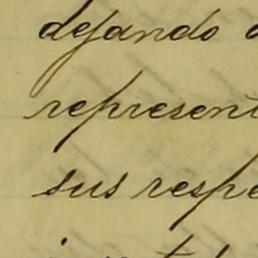 dejando
represent
sus respe